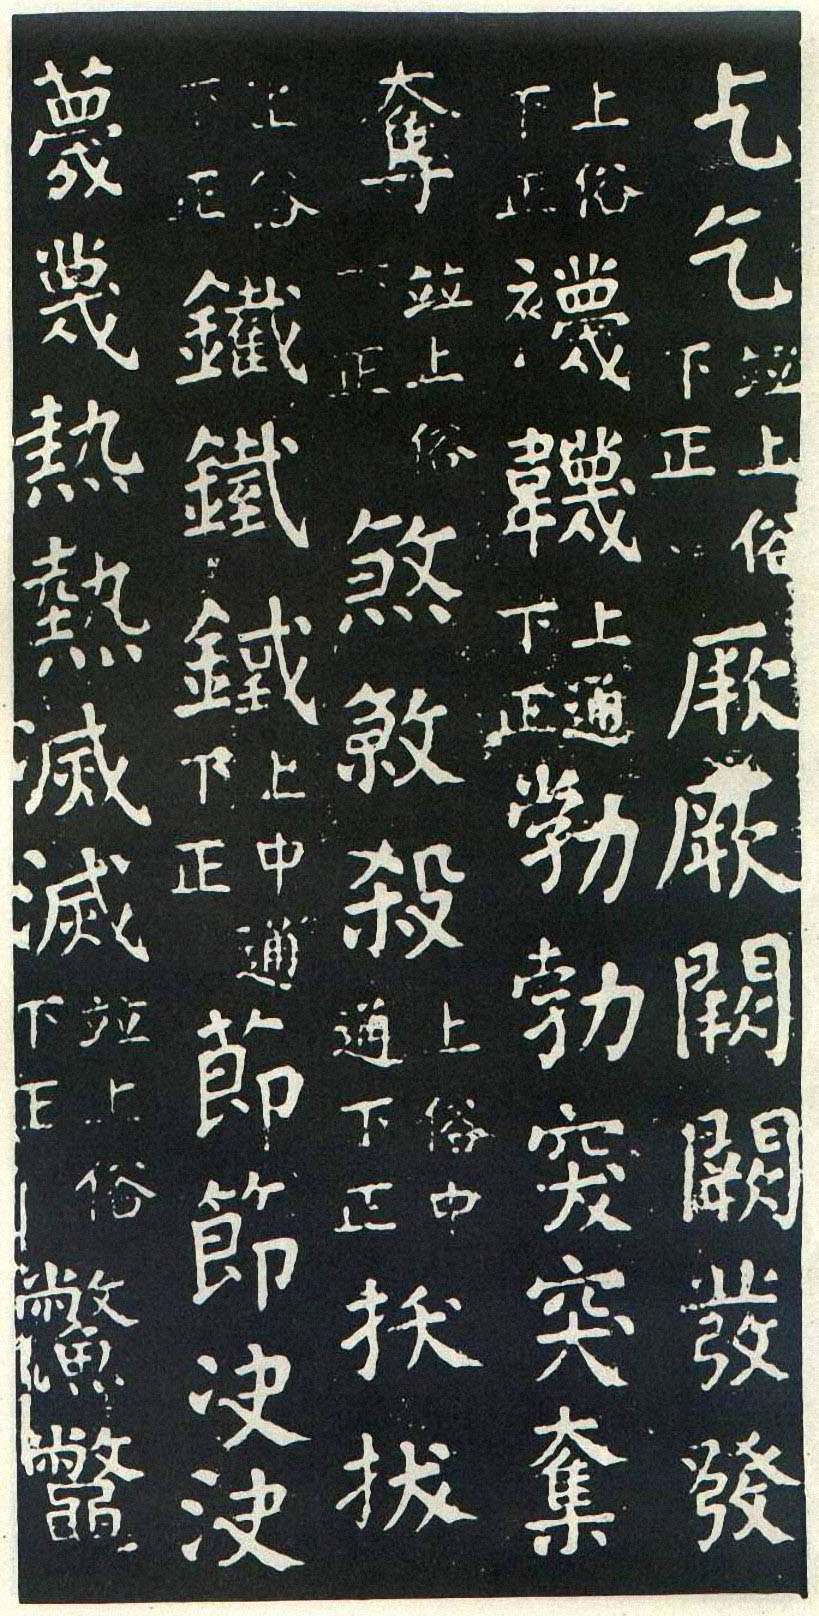 乞乞並上俗下正厥厥闕闕發發
上俗下正襪韈上通下正勃勃突突奪
奪並上俗下正煞煞殺上俗中通下正拔拔
上俗下正鐵鐵鐵上中通下正節節决決
蔑蔑熱熱滅滅並上俗下正鱉鼈